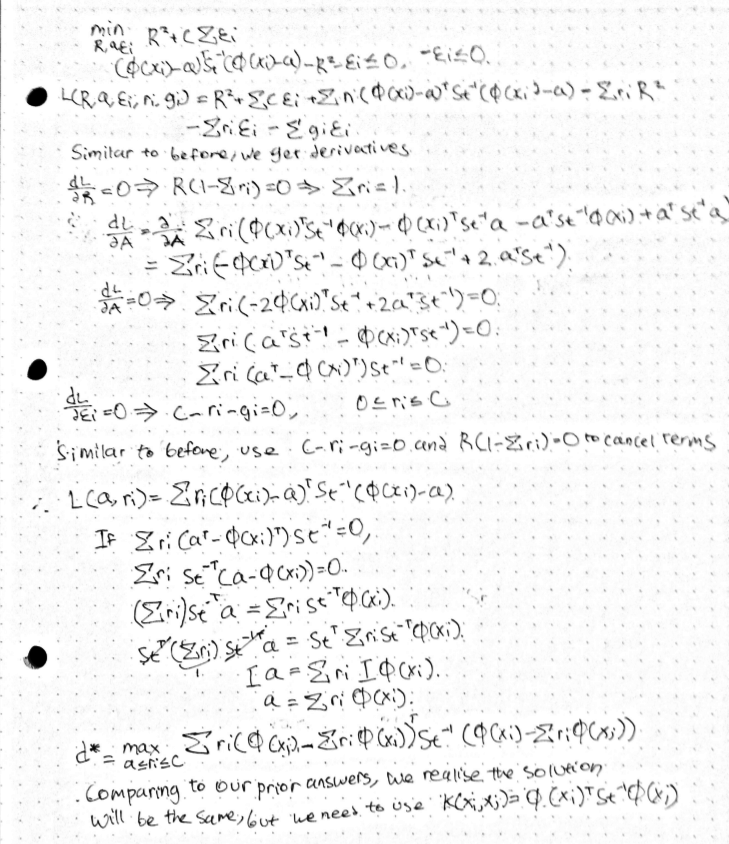 min R,a,εi R²+C Σεi
(Φ(xi)-a)ᵀSt⁻¹(Φ(xi)-a)-R²-εi≤0, -εi≤0.
L(R,a,εi,ri,gi) = R²+ΣCεi+Σri(Φ(xi)-a)ᵀSt⁻¹(Φ(xi)-a)-ΣriR²
-Σriεi - Σgiεi.
Similar to before, we get derivatives
∂L/∂R=0⇒ R(1-Σri)=0⇒ Σri=1.
∴ ∂L/∂A = ∂/∂A Σri(Φ(xi)ᵀSt⁻¹Φ(xi)-Φ(xi)ᵀSt⁻¹a-aᵀSt⁻¹Φ(xi)+aᵀSt⁻¹a)
= Σri(-Φ(xi)ᵀSt⁻¹-Φ(xi)ᵀSt⁻¹+2aᵀSt⁻¹).
∂L/∂A=0⇒ Σri(-2Φ(xi)ᵀSt⁻¹+2aᵀSt⁻¹)=0.
Σri(aᵀSt⁻¹-Φ(xi)ᵀSt⁻¹)=0.
Σri(aᵀ-Φ(xi)ᵀ)St⁻¹=0.
∂L/∂εi=0⇒ C-ri-gi=0, 0≤ri≤C
Similar to before, use C-ri-gi=0 and R(1-Σri)=0 to cancel terms
∴ L(a,ri)= Σri(Φ(xi)-a)ᵀSt⁻¹(Φ(xi)-a).
If Σri(aᵀ-Φ(xi)ᵀ)St⁻¹=0,
Σri St⁻ᵀ(a-Φ(xi))=0.
(Σri)St⁻ᵀa = ΣriSt⁻ᵀΦ(xi).
Stᵀ(Σri)St⁻ᵀa = StᵀΣriSt⁻ᵀΦ(xi).
1
I a = Σri IΦ(xi).
a = ΣriΦ(xi).
d*= max a≤ri≤C Σri(Φ(xi)-ΣriΦ(xi))ᵀSt⁻¹(Φ(xi)-ΣriΦ(xi))
Comparing to our prior answers, we realise the solution
will be the same, but we need to use K(xi,xj)=Φ(xi)ᵀSt⁻¹Φ(xj)